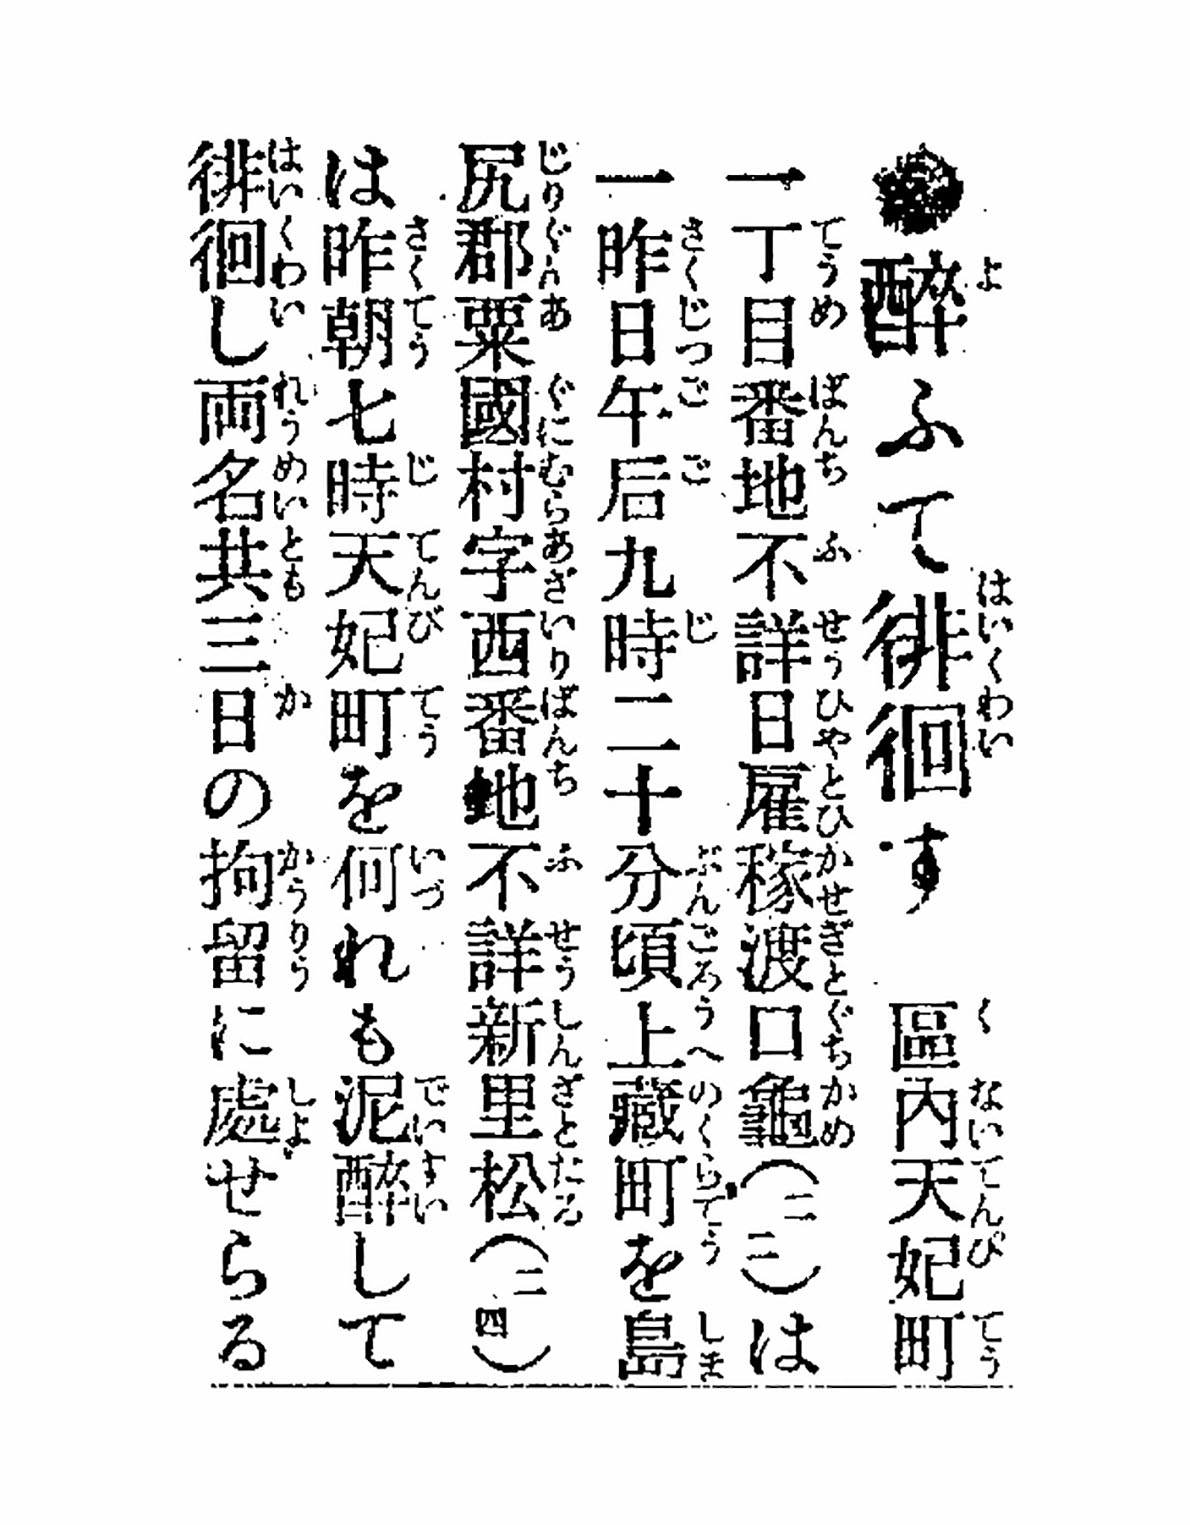 ●醉ふて徘徊す　區内天妃町
一丁目番地不詳日雇稼渡口龜(二二)は
一昨日午后九時二十分頃上藏町を島
尻郡粟國村字西番地不詳新里松(二四)
は昨朝七時天妃町を何れも泥醉して
徘徊し両名共三日の拘留に處せらる